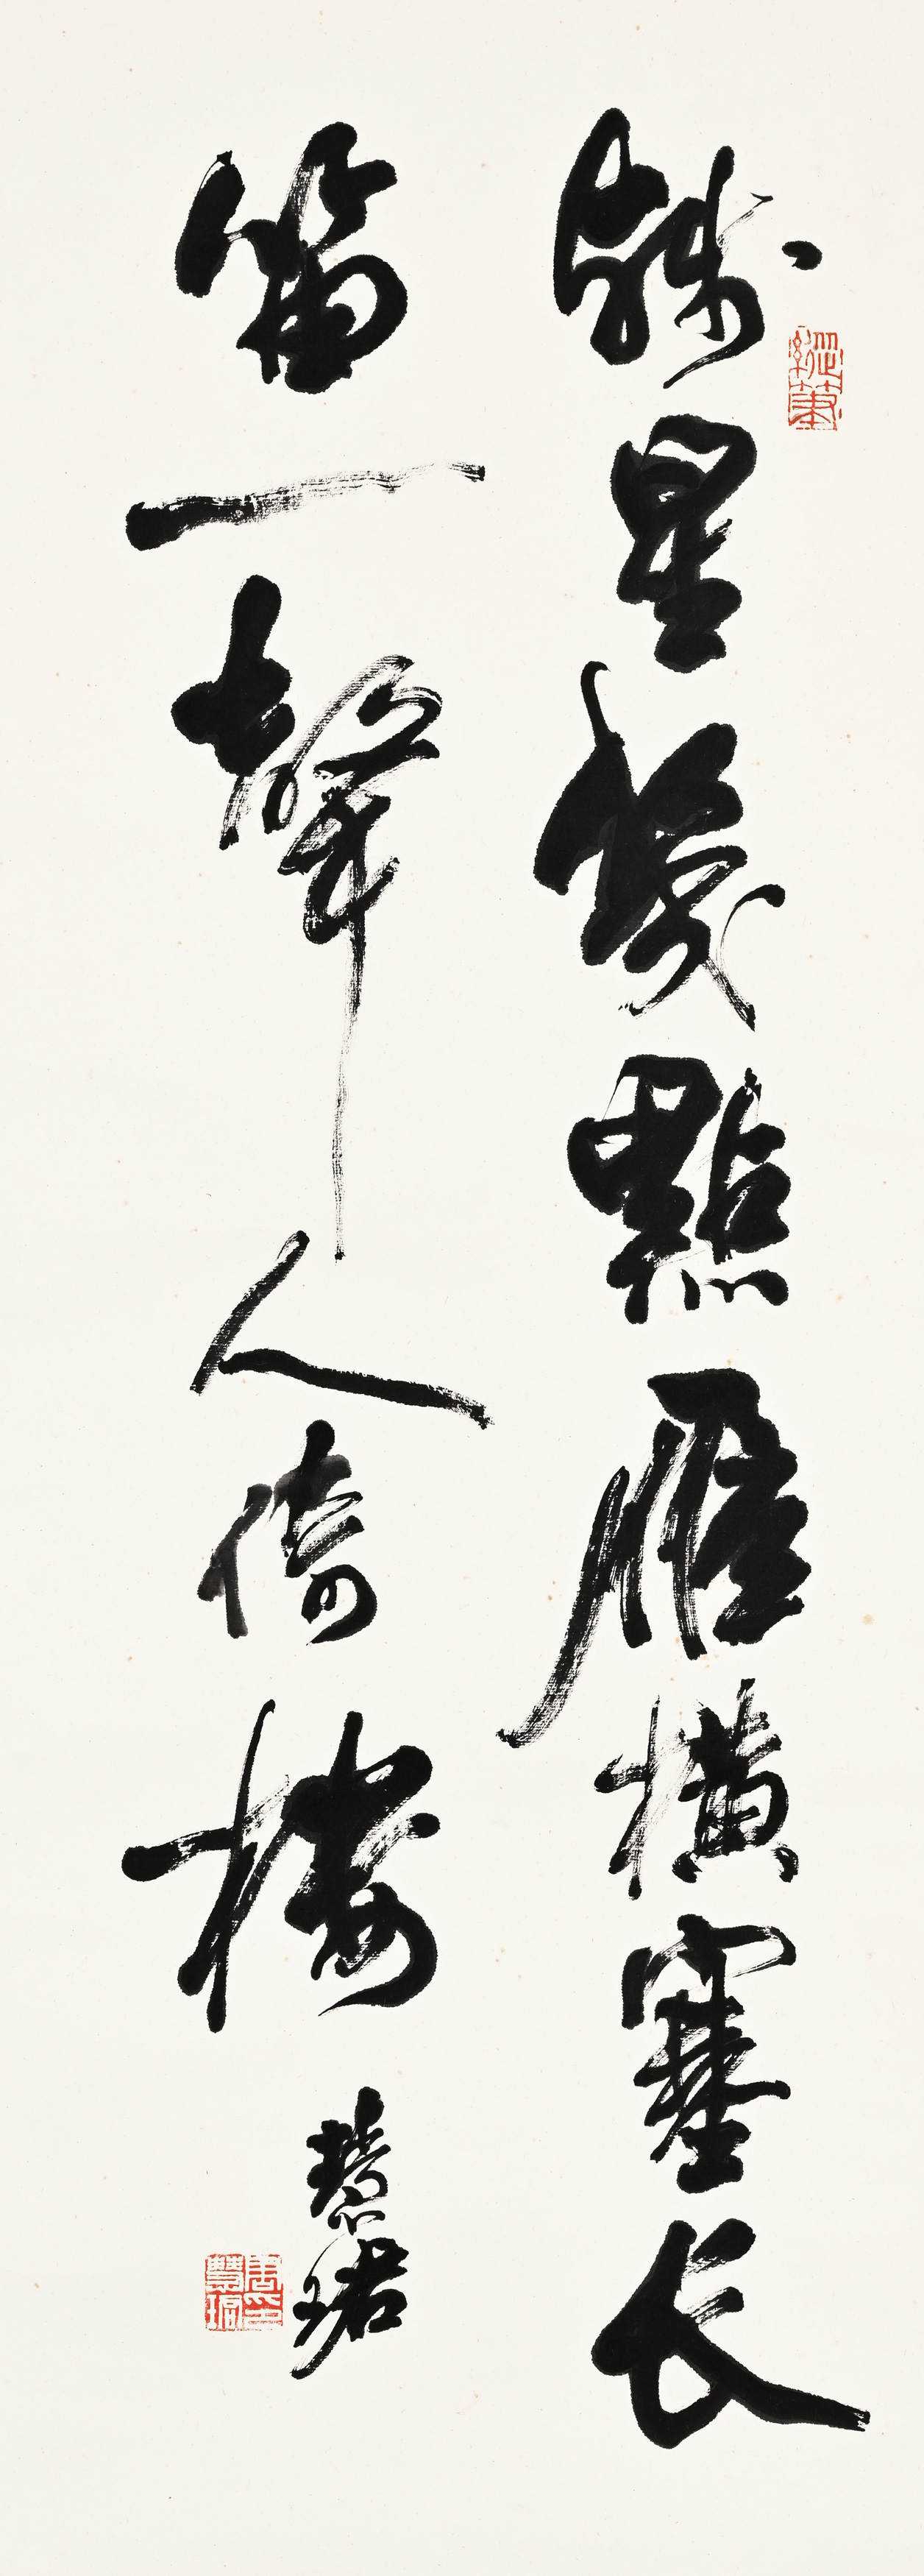 殘星幾點雁橫塞長
笛一聲人倚樓
慧珺
周印慧珺